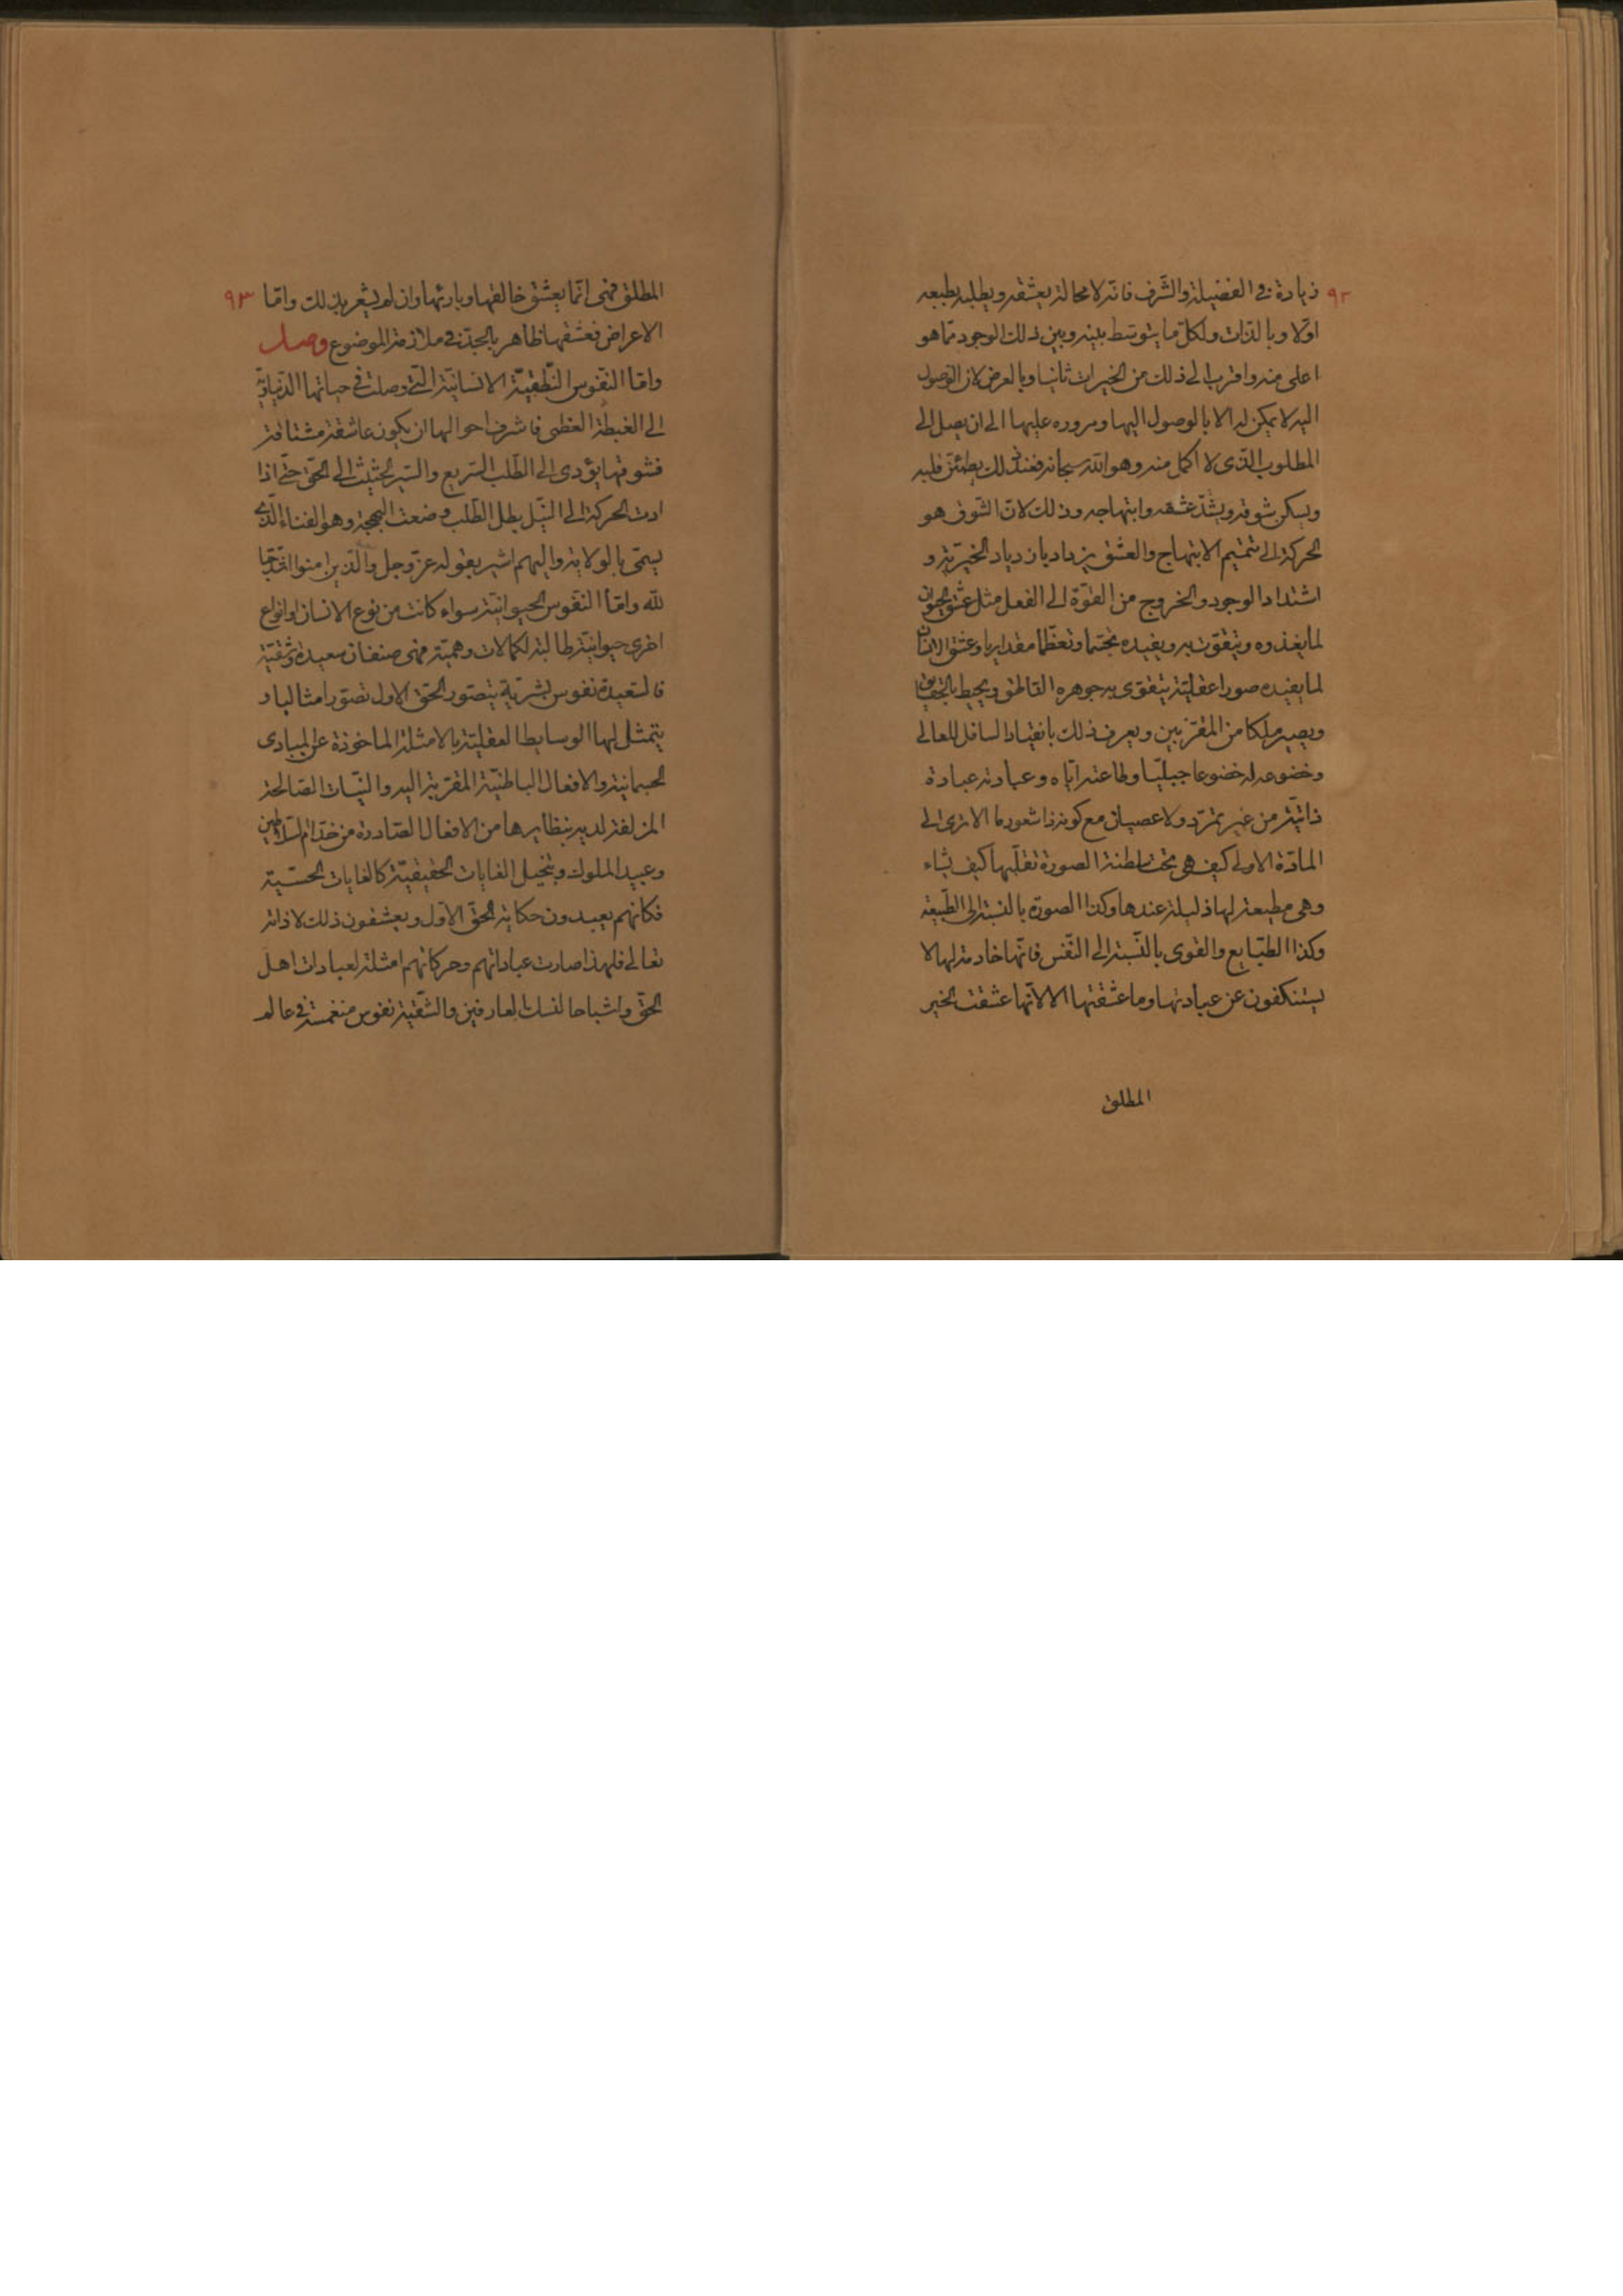 ٩٢
زيادة فى الفضيلة والشرف فانه لا محالة يعشقه ويطلبه بطبعه
اولا وبالذات ولكل ما يتوسط بينه وبين ذلك الوجود مما هو
اعلى منه واقرب الى ذلك من الخيرات ثانيا وبالعرض لان الوصول
اليه لا يمكن له الا بالوصول اليها ومروره عليها الى ان يصل الى
المطلوب الذى لا اكمل منه وهو الله سبحانه فعند ذلك يطمئن قلبه
ويسكن شوقه ويشتد عشقه وابتهاجه وذلك لان الشوق هو
الحركة الى تتميم الابتهاج والعشق يزداد بازدياد الخيرية و
اشتداد الوجود والخروج من القوة الى الفعل مثل عشق الحيوان
لما يغذوه ويتقوت به ويفيده تجسما وتعظما مقداريا وعشق الانسان
لما يفيده صورا عقلية يتقوى به جوهره الناطق ويحيط بالحقايق
ويصير ملكا من المقربين ويعرف ذلك بانقياد السافل للعالى
وخضوعه له خضوعا جبليا وطاعته اياه وعبادته عبادة
ذاتية من غير تمرد ولا عصيان مع كونه ذا شعور ما الا ترى الى
المادة الاولى كيف هى تحت سلطنة الصورة تقلبها كيف يشاء
وهى مطيعة لها ذليلة عندها وكذا الصورة بالنسبة الى الطبيعة
وكذا الطبايع والقوى بالنسبة الى النفس فانها خادمة لها لا
يستنكفون عن عبادتها وما عشقتها الا لانها عشقت الخير
المطلق
٩٣
المطلق فهى انما يعشق خالقها وبارئها وان لم يشعر بذلك واما
الاعراض فعشقها ظاهر بالجد فى ملازمة الموضوع وصل
واما النفوس النطقية الانسانية التى وصلت فى حياتها الدنياوية
الى الغبطة العظمى فاشرف احوالها ان يكون عاشقة مشتاقة
فشوقها يؤدى الى الطلب السريع والسير الحثيث الى الحق حتى اذا
ادت الحركة الى النيل بطل الطلب وضعت البهجة وهو الفناء الذى
يسمى بالولاية واليهم اشير بقوله عز وجل والذين امنوا اشد حبا
لله واما النفوس الحيوانية سواء كانت من نوع الانسان او انواع
اخرى حيوانية طالبة لكمالات وهمية فهى صنفان سعيدة وشقية
فالسعيدة نفوس بشرية يتصور الحق الاول تصورا مثاليا و
يتمثل لها الوسايط العقلية بالامثلة الماخوذة عن المبادى
الجسمانية والافعال الباطنية المقربة اليه والنيات الصالحة
المزلفة لديه بنظايرها من الافعال الصادرة من خدام السلاطين
وعبيد الملوك وبتخيل الغايات الحقيقية كالغايات الحسية
فكانهم يعبدون حكاية الحق الاول ويعشقون ذلك لا ذاته
تعالى فلهذا صارت عباداتهم وحركاتهم امثلة لعبادات اهل
الحق واشباحا لنسك العارفين والشقية نفوس منغمسة فى عالم